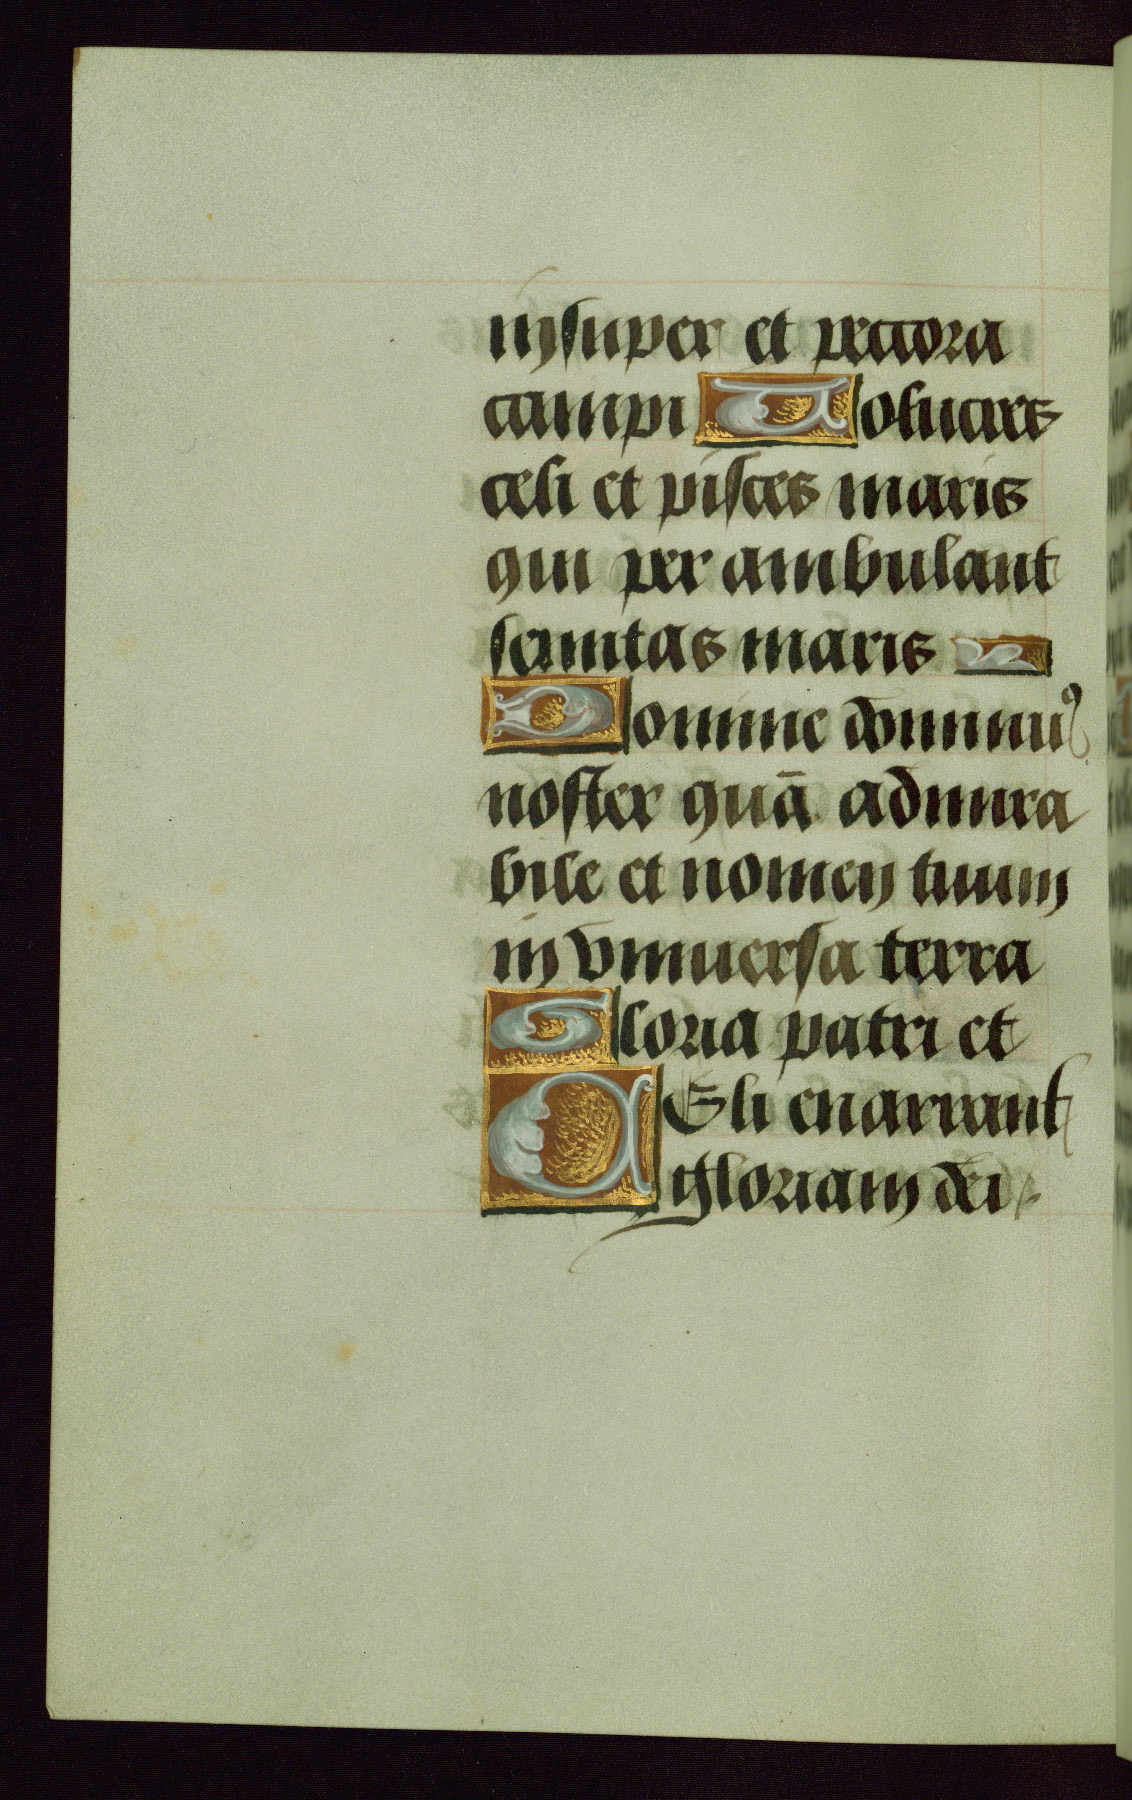 insuper et peccora
campi Volucres
celi et pisces maris
qui per ambulant
semitas maris
Domine dominus
noster quā admira
bile et nomen tuum
in vniuersa terra
Gloria patri et
Celi enarrant
gloriam dei